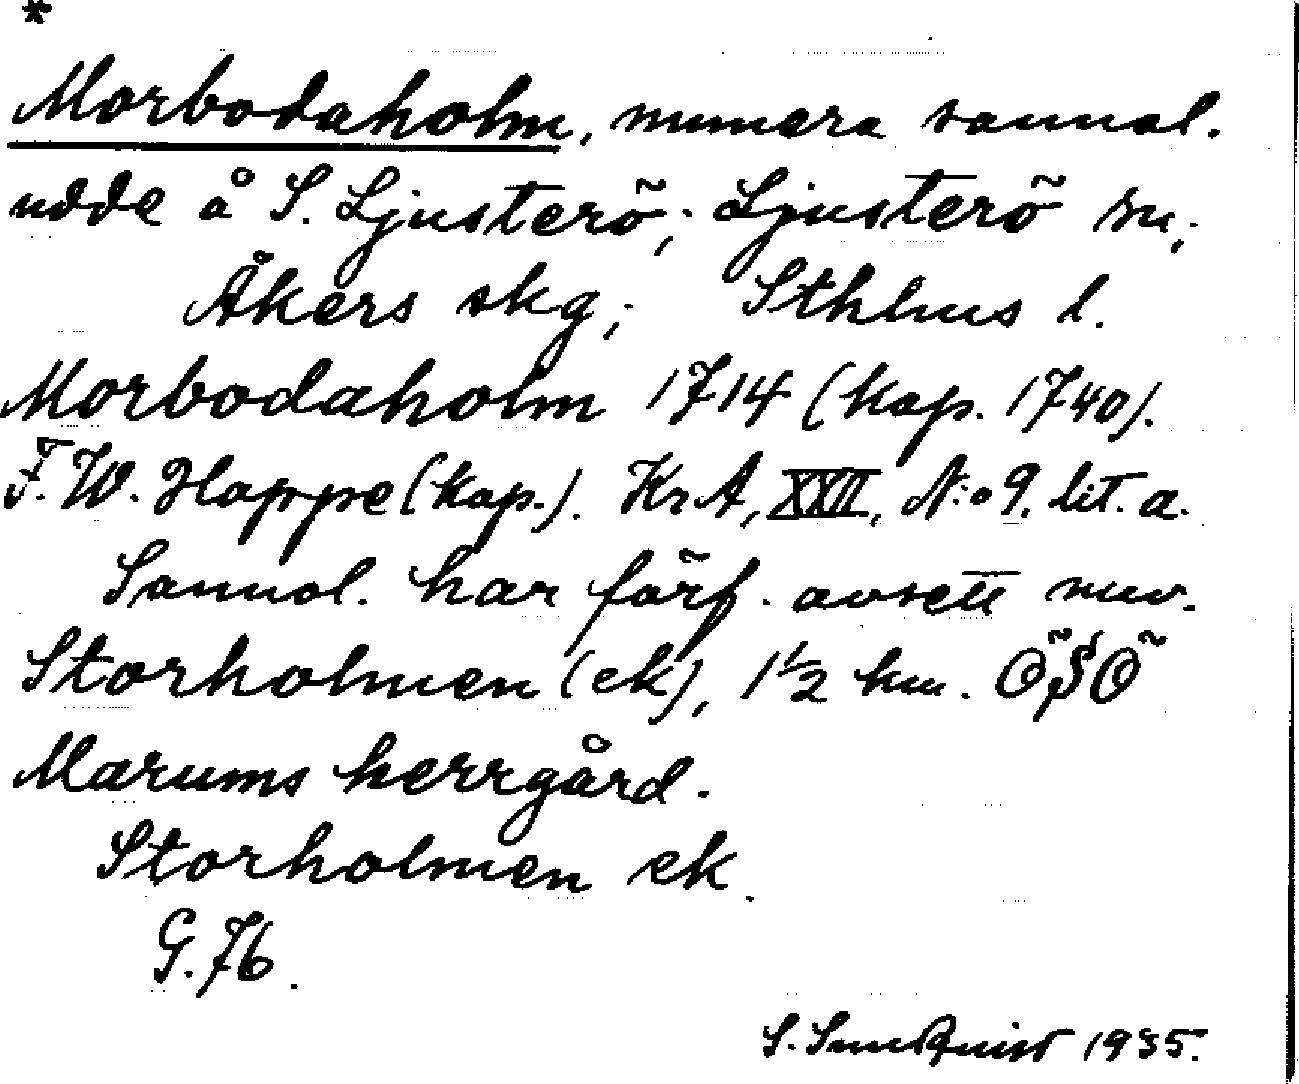 *
Morbodaholm, numera sannol.
udde å S. Ljusterö; Ljusterö sn,
Åkers skg; Sthlms l.
Morbodaholm 1714 (kop. 1740).
F.W. Hoppe (kop.). KrA, XXII, N:o 9. lit. a.
Sannol. har förf. avsett nuv.
Storholmen (ek), 1½ km. ÖSÖ
Marums herrgård.
Storholmen ek.
G. 76.
1935.